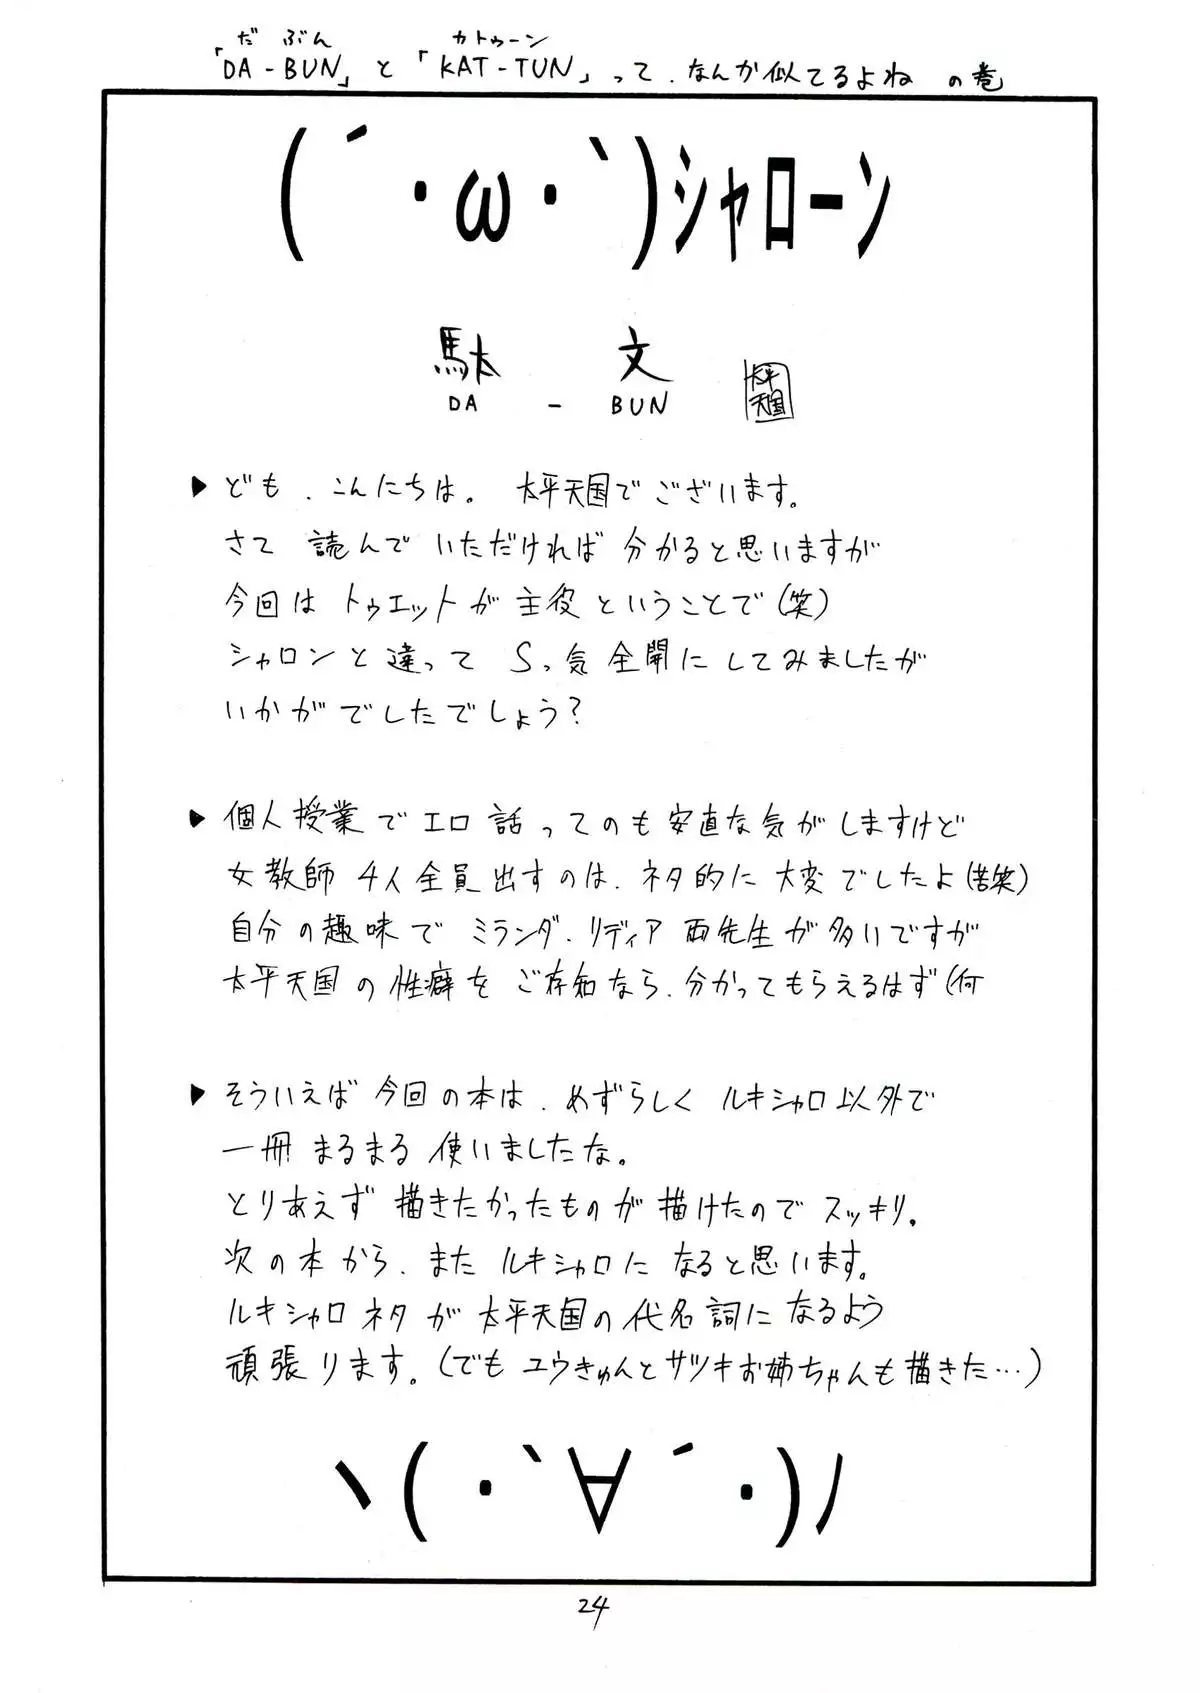 だ ぶん カトゥーン
「DA-BUN」と「KAT-TUN」って、なんか似てるよね の巻
(´・ω・`)シャローン
駄 文
DA - BUN
太平
天国
▶ ども、こんにちは。 太平天国でございます。
さて 読んで いただければ 分かると思いますが
今回は トゥエットが 主役 ということで(笑)
シャロンと 違って Sっ気 全開に してみましたが
いかがでしたでしょう?
▶ 個人授業で エロ話ってのも 安直な気がしますけど
女教師 4人全員出すのは、ネタ的に 大変でしたよ(苦笑)
自分の趣味で ミランダ、リディア 両先生が多いですが
太平天国の性癖を ご存知なら、分かってもらえるはず(何
▶ そういえば 今回の本は、めずらしく ルキシャロ以外で
一冊 まるまる 使いましたな。
とりあえず 描きたかったものが 描けたので スッキリ。
次の本から、また ルキシャロに なると思います。
ルキシャロネタが 太平天国の代名詞に なるよう
頑張ります。(でも ユウきゅんと サツキお姉ちゃんも描きた…)
ヽ(・`∀´・)ノ
24